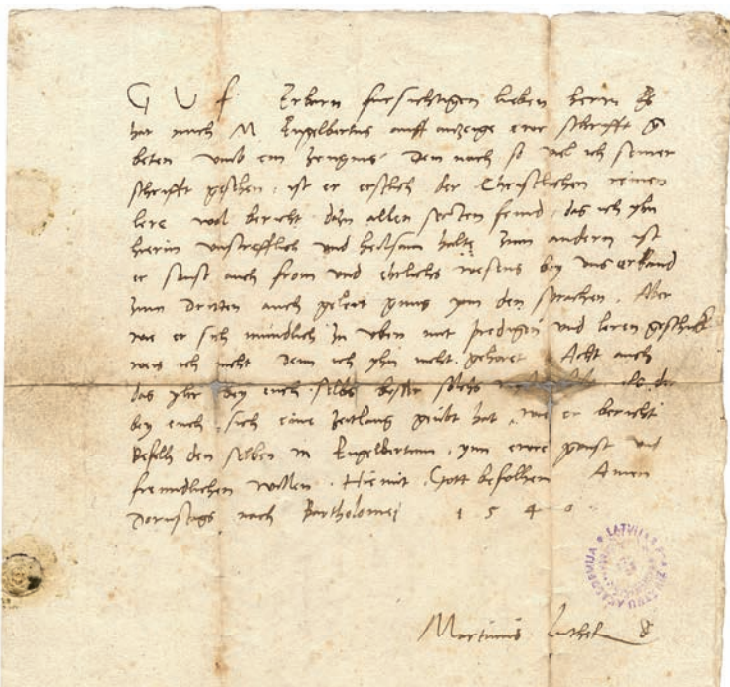 G V F Erbarn fursichtigen lieben herrn Es
hat mich M. Engelbertus auff anzeige ewr schrifft ge
beten vmb ein zeugnis. Dem nach so viel ich seiner
schrifft gesehen, ist er erstlich der Christlichen reinen
lere wol bericht dazu allen secten feind, das ich yhn
hierin vnstrefflich vnd heilsam halte Zum andern ist
er sonst auch from vnd ehrlichs wesens bey vns erkand
Zum dritten auch geleret gnug ynn den sprachen. Aber
wie er sich mundlich zu vben mit predigen vnd leren geschickt
weis ich nicht denn ich yhn nicht gehoret Acht auch
das yhr bey euch selbs besser solchs als der
bey euch sich eine zeitlang geubt hat, wie er bericht
Befelh den selben M Engelbertum ynn ewre gunst vnd
freundlichen willen. Hiemit Gott befolhen Amen
Dornstags nach Bartholomei 1540
LATVIJAS PSR ZINĀTŅU AKADĒMIJA
Martinus Luther